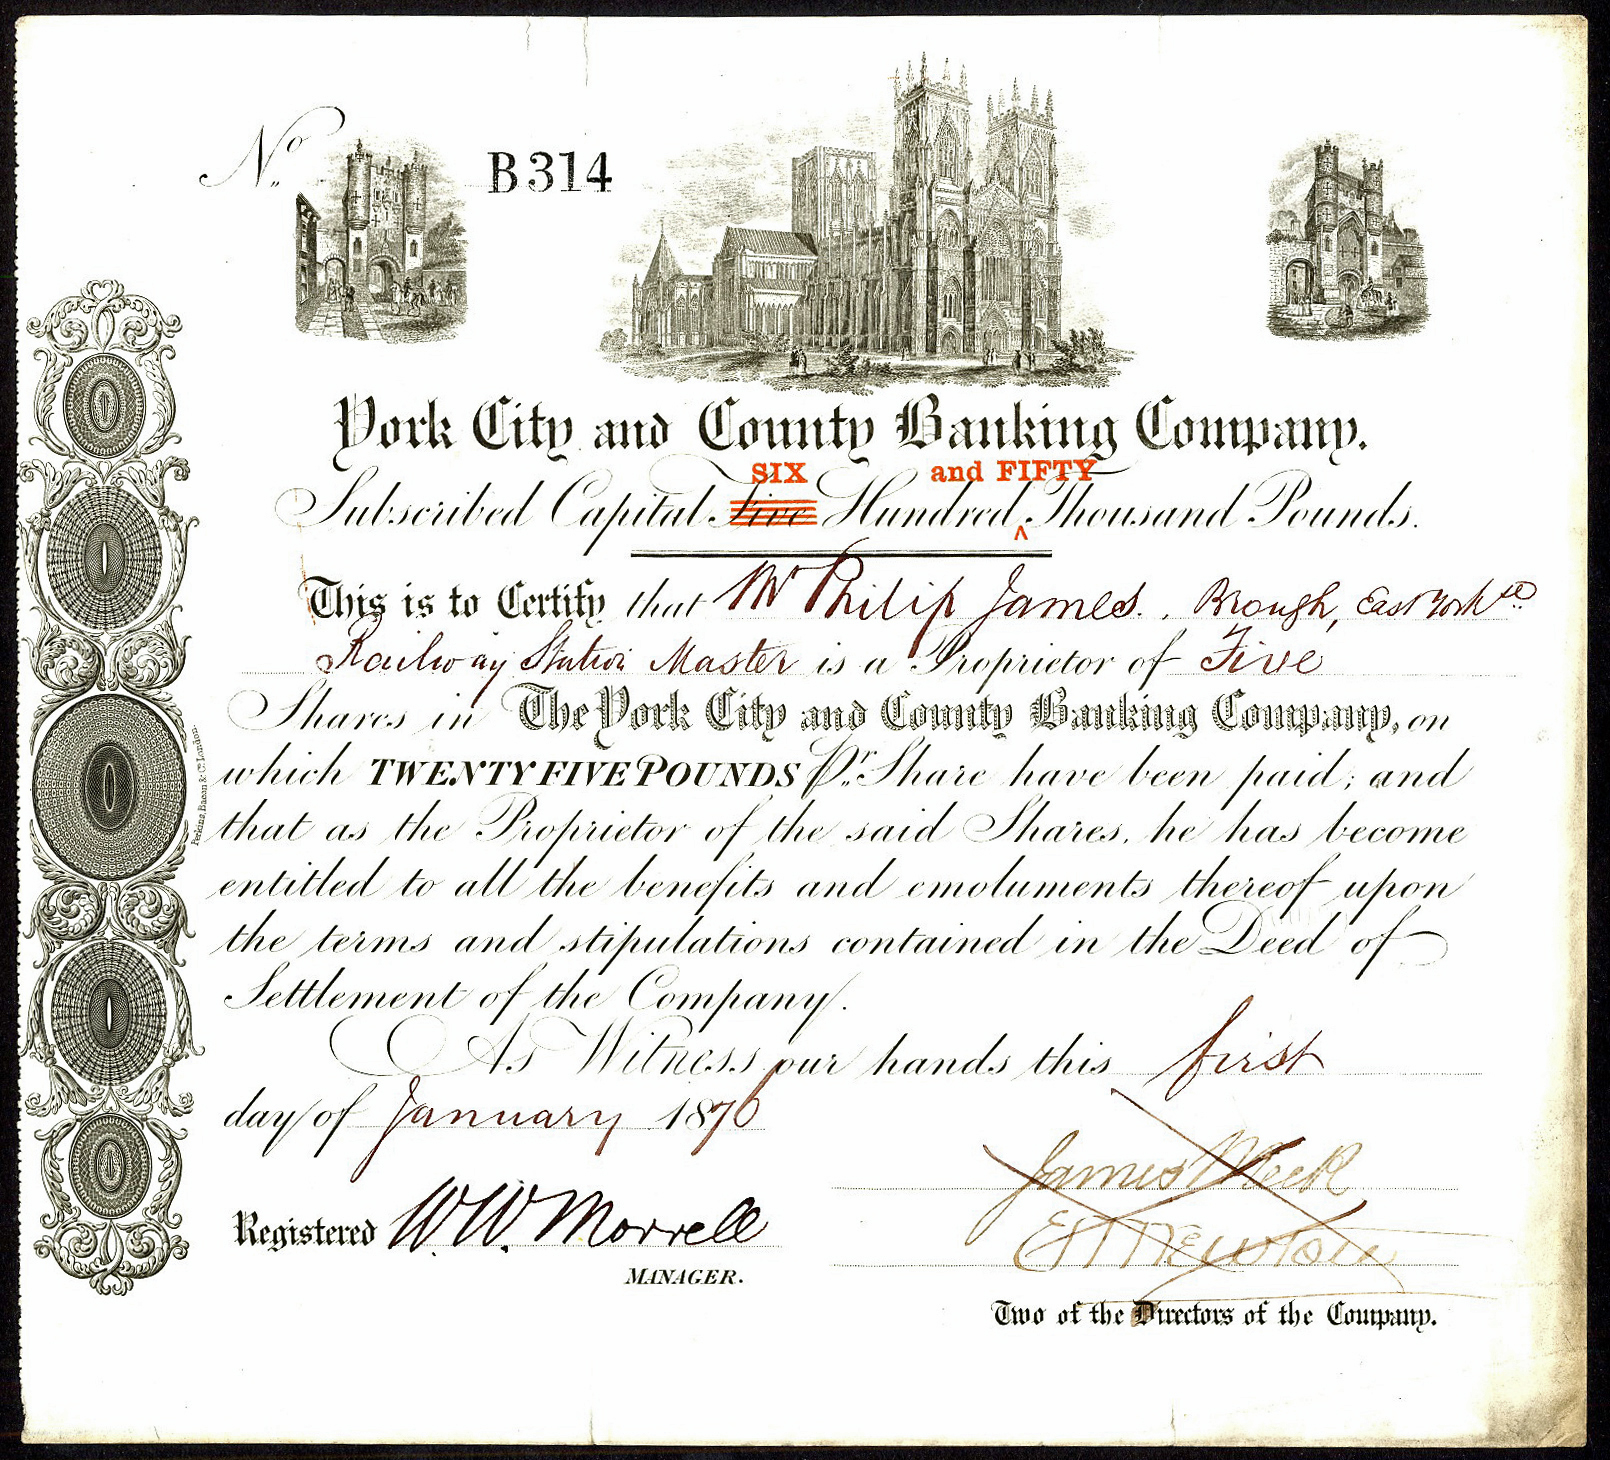 No. B314
York City and County Banking Company.
SIX and FIFTY
Subscribed Capital Five Hundred ^ Thousand Pounds.
This is to Certify that Mr Philip James. Brough, East Yorkre
Railway Station Master is a Proprietor of Five
Shares in The York City and County Banking Company, on
which TWENTY FIVE POUNDS Pr. Share have been paid; and
that as the Proprietor of the said Shares, he has become
entitled to all the benefits and emoluments thereof upon
the terms and stipulations contained in the Deed of
Settlement of the Company.
As Witness our hands this first
day of January 1876
James Meek
Registered W. W. Morrell
E H Newton
MANAGER.
Two of the Directors of the Company.
Perkins, Bacon & Co. London.